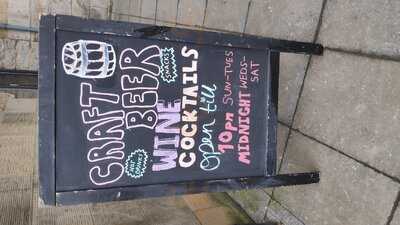 CRAFT
BEER
HOT
DRINKS
SNACKS
WINE
COCKTAILS
open till
10pm SUN-TUES
MIDNIGHT WEDS-
SAT